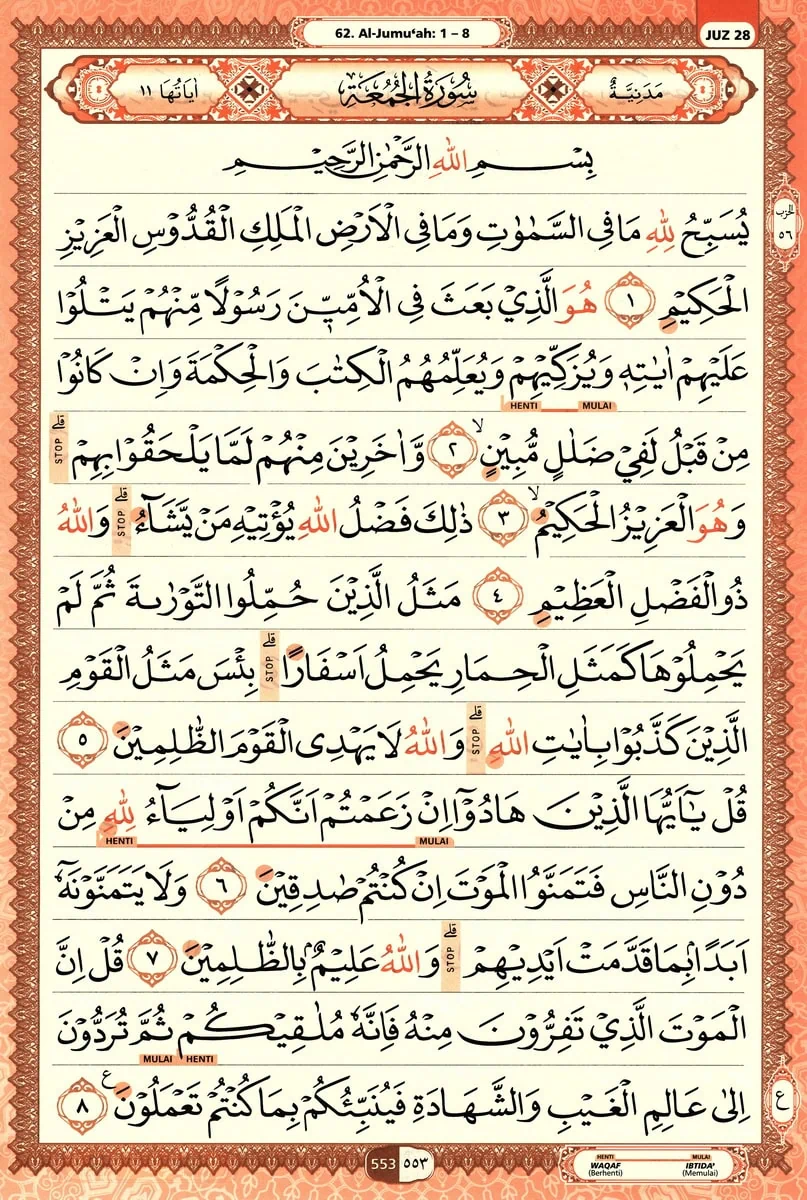 62. Al-Jumu‘ah: 1 – 8
JUZ 28
مَدَنِيَّةٌ
سُوْرَةُ الْجُمُعَةِ
اٰيَاتُهَا ١١
بِسْمِ اللّٰهِ الرَّحْمٰنِ الرَّحِيْمِ
الحزب
٥٦
يُسَبِّحُ لِلّٰهِ مَا فِى السَّمٰوٰتِ وَمَا فِى الْاَرْضِ الْمَلِكِ الْقُدُّوْسِ الْعَزِيْزِ
الْحَكِيْمِ ١ هُوَ الَّذِيْ بَعَثَ فِى الْاُمِّيّٖنَ رَسُوْلًا مِّنْهُمْ يَتْلُوْا
عَلَيْهِمْ اٰيٰتِهٖ وَيُزَكِّيْهِمْ وَيُعَلِّمُهُمُ الْكِتٰبَ وَالْحِكْمَةَ وَاِنْ كَانُوْا
HENTI MULAI
مِنْ قَبْلُ لَفِيْ ضَلٰلٍ مُّبِيْنٍۙ ٢ وَّاٰخَرِيْنَ مِنْهُمْ لَمَّا يَلْحَقُوْا بِهِمْۗ STOP
وَهُوَ الْعَزِيْزُ الْحَكِيْمُۙ ٣ ذٰلِكَ فَضْلُ اللّٰهِ يُؤْتِيْهِ مَنْ يَّشَاۤءُۗ STOP وَاللّٰهُ
ذُو الْفَضْلِ الْعَظِيْمِ ٤ مَثَلُ الَّذِيْنَ حُمِّلُوا التَّوْرٰىةَ ثُمَّ لَمْ
يَحْمِلُوْهَا كَمَثَلِ الْحِمَارِ يَحْمِلُ اَسْفَارًاۗ STOP بِئْسَ مَثَلُ الْقَوْمِ
الَّذِيْنَ كَذَّبُوْا بِاٰيٰتِ اللّٰهِۗ STOP وَاللّٰهُ لَا يَهْدِى الْقَوْمَ الظّٰلِمِيْنَ ٥
قُلْ يٰٓاَيُّهَا الَّذِيْنَ هَادُوْٓا اِنْ زَعَمْتُمْ اَنَّكُمْ اَوْلِيَاۤءُ لِلّٰهِ مِنْ
HENTI MULAI
دُوْنِ النَّاسِ فَتَمَنَّوُا الْمَوْتَ اِنْ كُنْتُمْ صٰدِقِيْنَ ٦ وَلَا يَتَمَنَّوْنَهٗٓ
اَبَدًاۢ بِمَا قَدَّمَتْ اَيْدِيْهِمْۗ STOP وَاللّٰهُ عَلِيْمٌۢ بِالظّٰلِمِيْنَ ٧ قُلْ اِنَّ
الْمَوْتَ الَّذِيْ تَفِرُّوْنَ مِنْهُ فَاِنَّهٗ مُلٰقِيْكُمْ ثُمَّ تُرَدُّوْنَ
MULAI HENTI
اِلٰى عَالِمِ الْغَيْبِ وَالشَّهَادَةِ فَيُنَبِّئُكُمْ بِمَا كُنْتُمْ تَعْمَلُوْنَ ࣖ ٨
ع
553 ٥٥٣
HENTI MULAI
WAQAF IBTIDA'
(Berhenti) (Memulai)